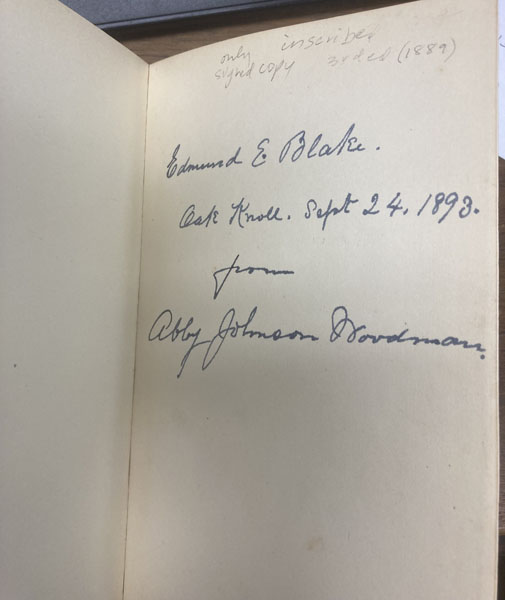 only inscribed
signed copy 3rd ed (1889)
Edmund E. Blake.
Oak Knoll. Sept 24. 1893.
from
Abby Johnson Woodman.